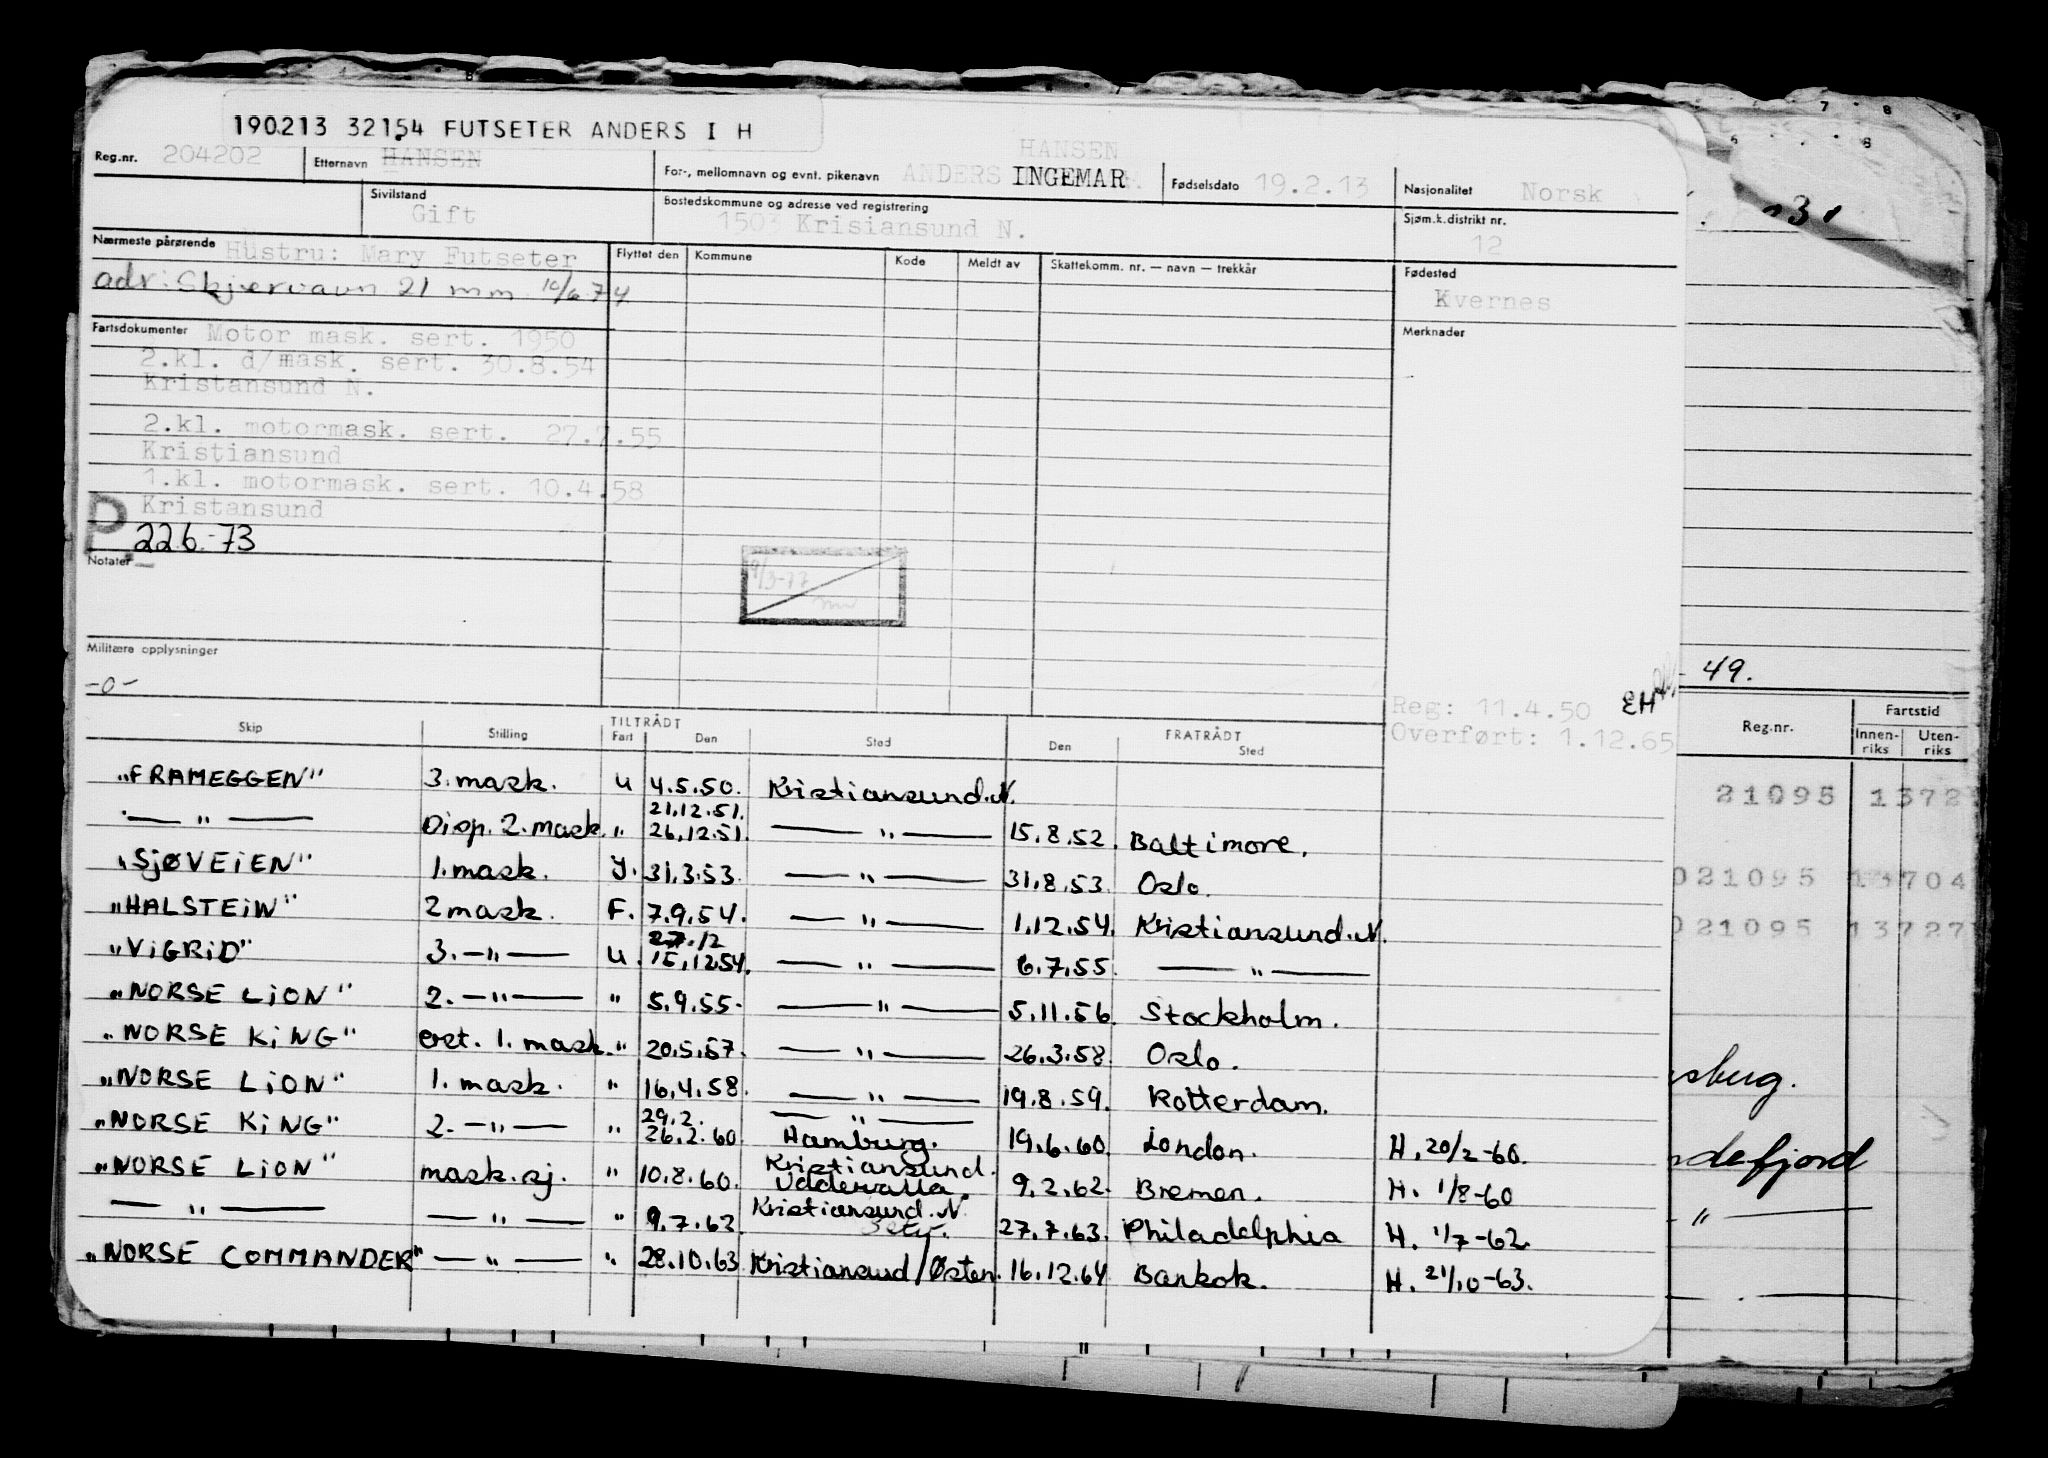 190213 32154 FUTSETER ANDERS I H
Reg.nr. 204202 Etternavn HANSEN For-, mellomnavn og evnt. pikenavn ANDERS INGEMAR HANSEN Fødselsdato 19.2.13 Nasjonalitet Norsk
Sivilstand Gift Bostedskommune og adresse ved registrering 1503 Krisiansund N. Sjøm.k.distrikt nr. 12
Nærmeste pårørende Hustru: Mary Futseter Flyttet den Kommune Kode Meldt av Skattekomm. nr. — navn — trekkår Fødested Kvernes
adr: 21 mm 10/6 74
Merknader
Fartsdokumenter Motor mask. sert. 1950
2.kl. d/mask. sert. 30.8.54
Kristansund N.
2.kl. motormask. sert. 27.7.55
Kristiansund
1.kl. motormask. sert. 10.4.58
Kristansund
P. 22.6.-73
Notater
9/3-77
Militære opplysninger
-0-
49.
Reg: 11.4.50 EH
Overført: 1.12.65
Skip Stilling TILTRÅDT Fart Den Sted FRATRÅDT Den Sted
Reg.nr. Fartstid Innen-riks Uten-riks
"FRAMEGGEN" 3. mask. U 4.5.50. Kristiansund.N.
21095 1372
21.12.51.
— " — Disp. 2. mask. " 26.12.51. — " — 15.8.52. Baltimore.
"SJØVEIEN" 1. mask. J. 31.3.53. — " — 31.8.53. Oslo.
021095 13704
"HALSTEIN" 2 mask. F. 7.9.54. — " — 1.12.54. Kristiansund.N.
021095 13727
27.12
"VIGRID" 3. — " — U. 15.12.54. — " — 6.7.55. — " —
"NORSE LION" 2. — " — " 5.9.55. — " — 5.11.56. Stockholm.
"NORSE KING" est. 1. mask. " 20.5.57. — " — 26.3.58. Oslo.
"NORSE LION" 1. mask. " 16.4.58. — " — 19.8.59. Rotterdam.
29.2. — " —
"NORSE KING" 2. — " — " 26.2.60 Hamburg. 19.6.60. London. H. 20/2-60.
Kristiansund.
"NORSE LION" mask.sj. " 10.8.60. Uddevalla. 9.2.62. Bremen. H. 1/8-60
Kristiansund.N.
— " — — " — " 9.7.62. 27.7.63. Philadelphia H. 1/7-62.
"NORSE COMMANDER" — " — " 28.10.63 Kristiansund/Østen. 16.12.64 Bankok. H. 21/10-63.